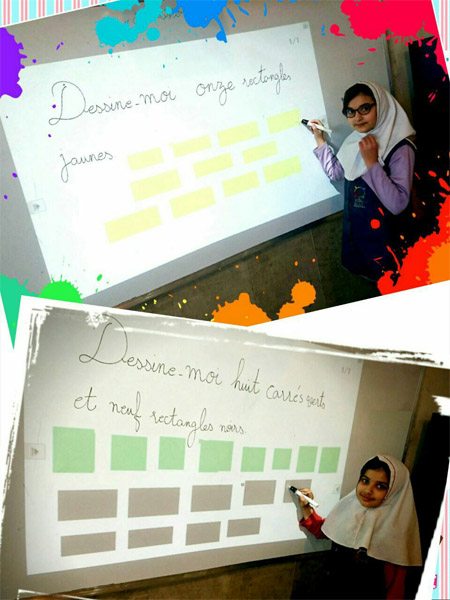 Dessine-moi onze rectangles
jaunes
Dessine-moi huit carrés verts
et neuf rectangles noirs.